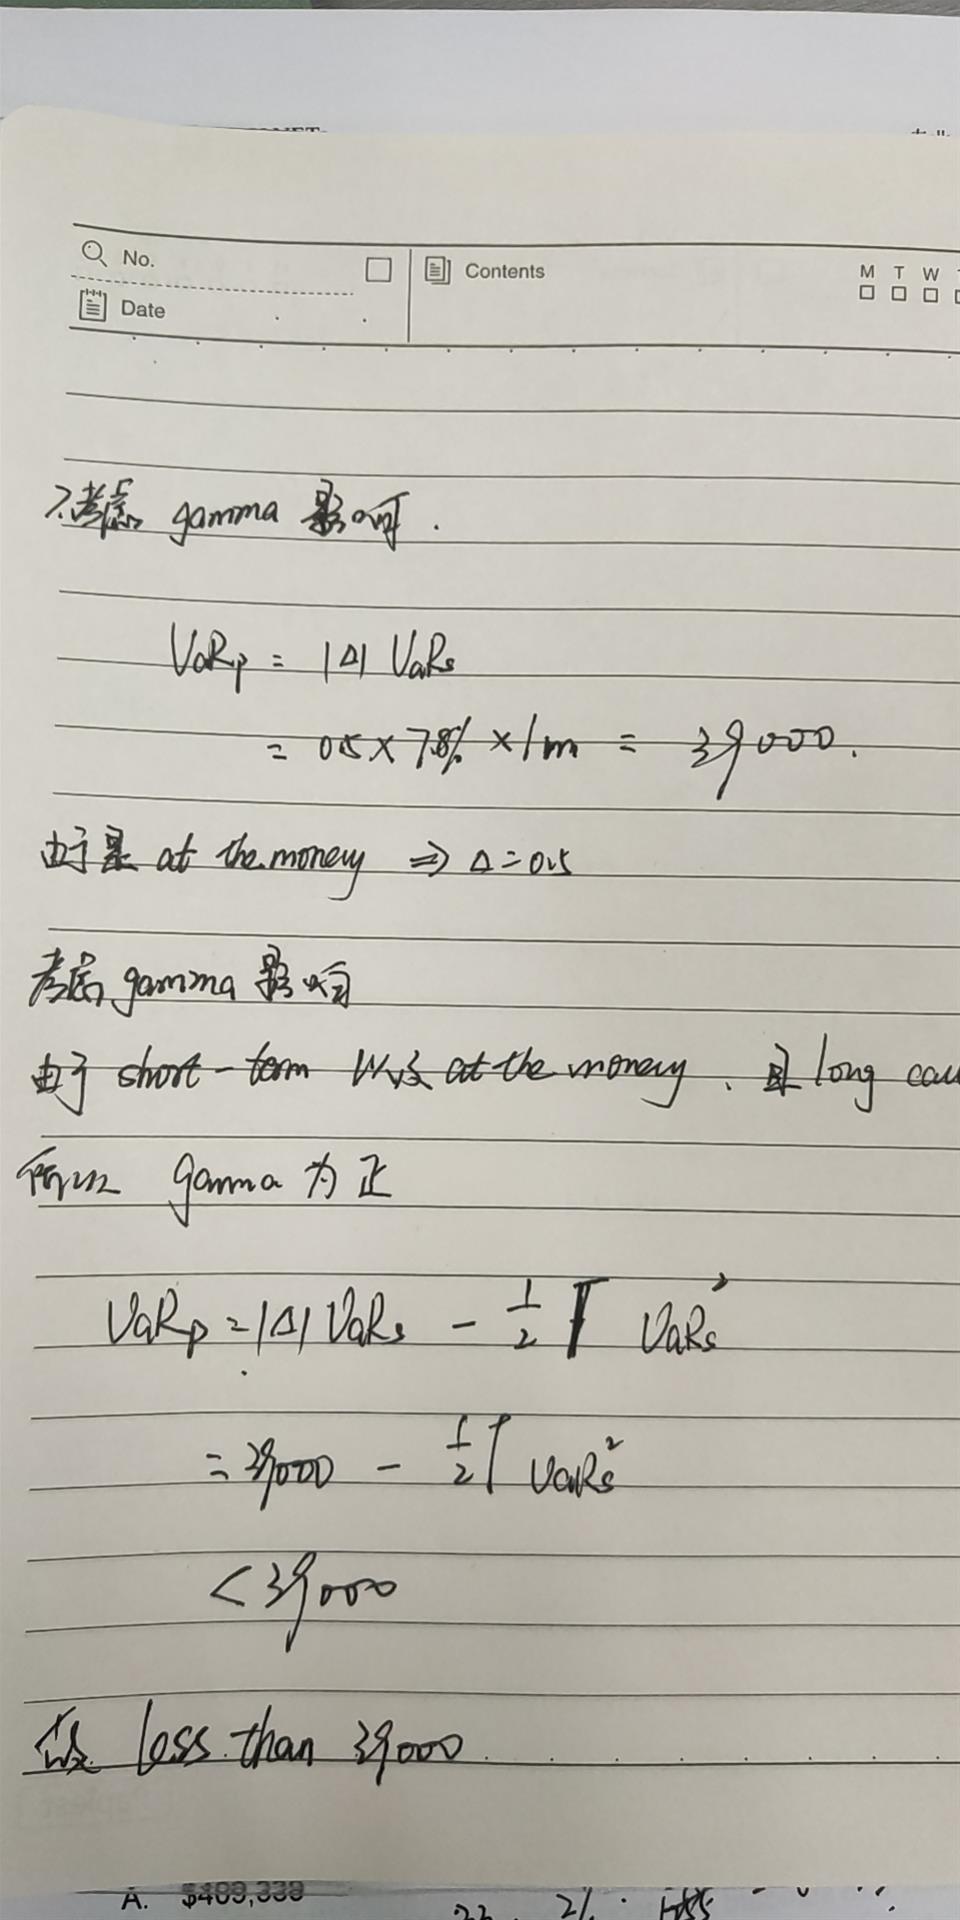 No.
Contents
M T W
Date
不考虑 gamma 影响.
VaRp = |Δ| VaRs
= 0.5 × 7.8% × 1m = 39000.
由于是 at the money ⇒ Δ = 0.5
考虑 gamma 影响
由于 short-term 以及 at the money, 且 long call
所以 gamma 为正
VaRp = |Δ| VaRs - 1/2 Γ VaRs²
= 39000 - 1/2 Γ VaRs²
< 39000
故 less than 39000
A. $489,339